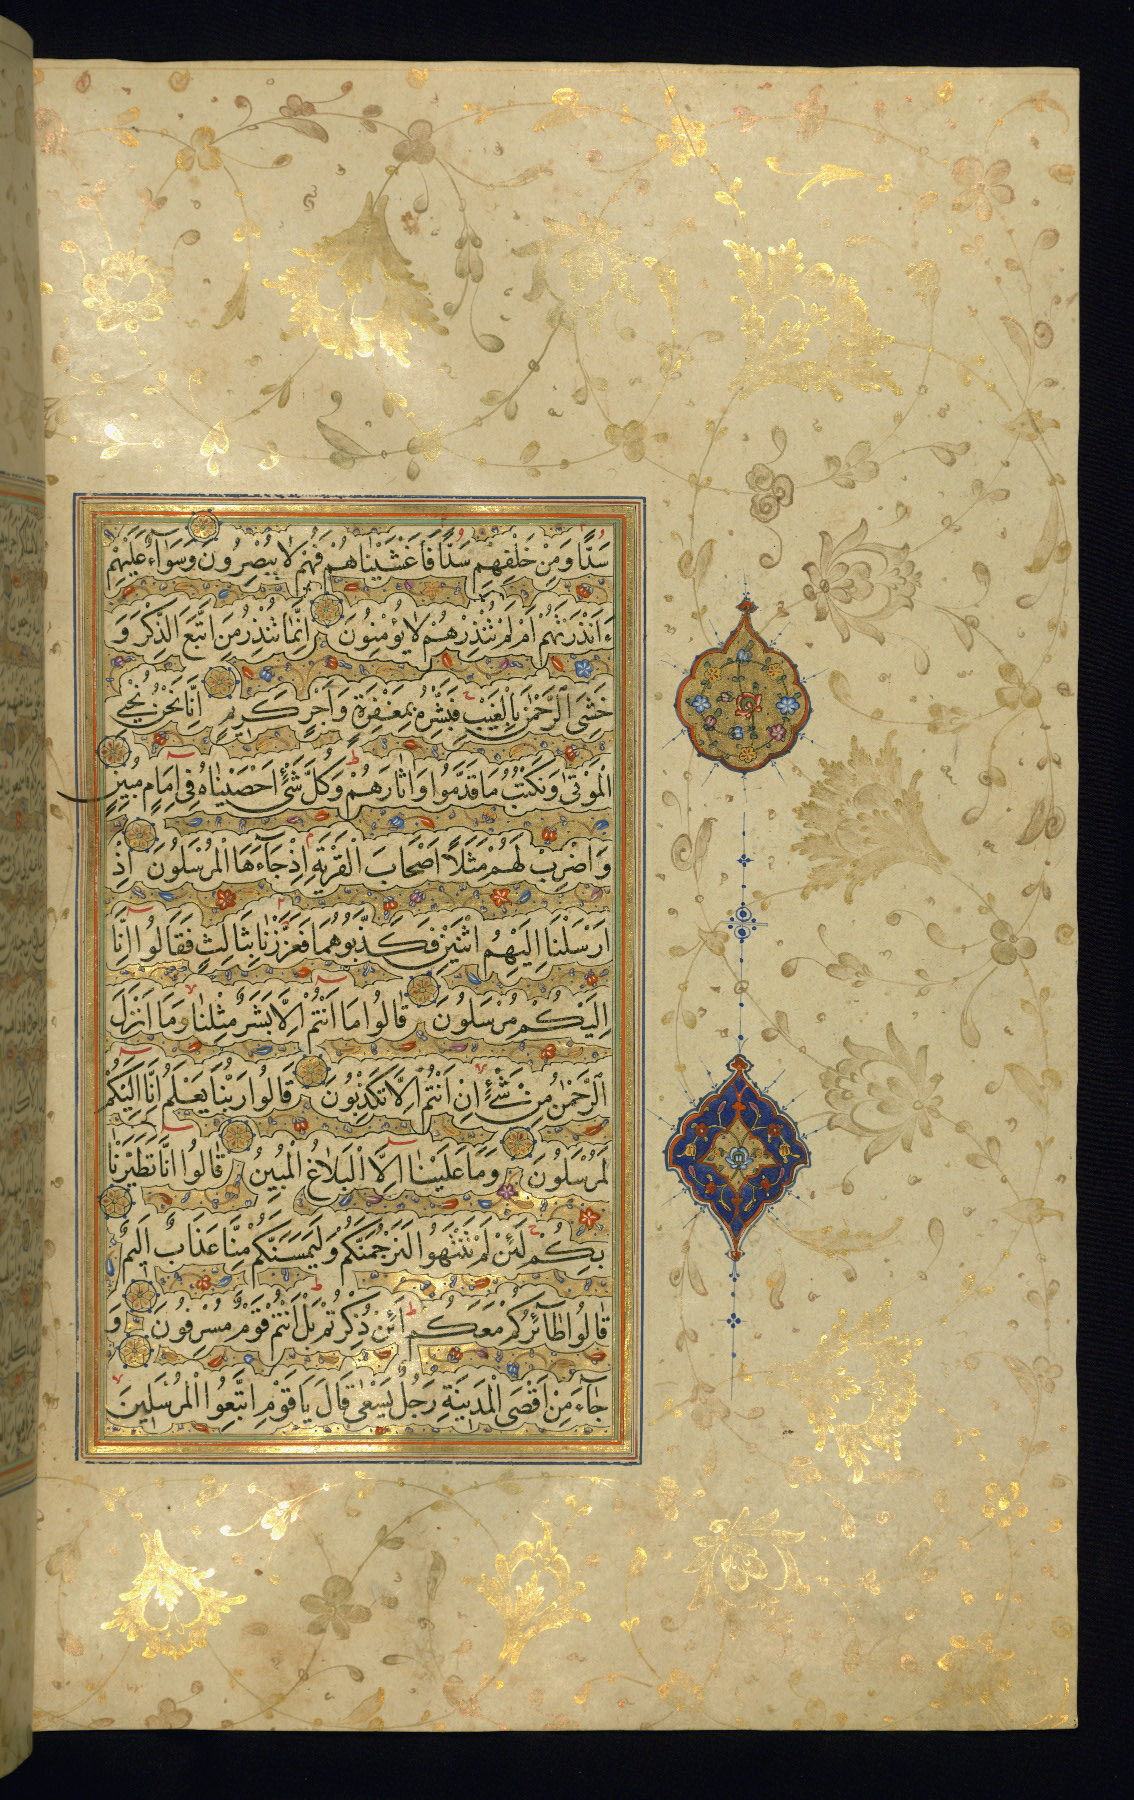 سَدًّا وَمِنْ خَلْفِهِمْ سَدًّا فَاَغْشَيْنَاهُمْ فَهُمْ لَا يُبْصِرُونَ وَسَوَاۤءٌ عَلَيْهِمْ
ءَاَنْذَرْتَهُمْ اَمْ لَمْ تُنْذِرْهُمْ لَا يُؤْمِنُونَ اِنَّمَا تُنْذِرُ مَنِ اتَّبَعَ الذِّكْرَ وَ
خَشِىَ الرَّحْمٰنَ بِالْغَيْبِ فَبَشِّرْهُ بِمَغْفِرَةٍ وَاَجْرٍ كَرِيمٍ اِنَّا نَحْنُ نُحْيِي
الْمَوْتٰى وَنَكْتُبُ مَا قَدَّمُوا وَاٰثَارَهُمْ وَكُلَّ شَىْءٍ اَحْصَيْنَاهُ فِى اِمَامٍ مُبِينٍ
وَاضْرِبْ لَهُمْ مَثَلًا اَصْحَابَ الْقَرْيَةِ اِذْ جَاۤءَهَا الْمُرْسَلُونَ اِذْ
اَرْسَلْنَا اِلَيْهِمُ اثْنَيْنِ فَكَذَّبُوهُمَا فَعَزَّزْنَا بِثَالِثٍ فَقَالُوا اِنَّا
اِلَيْكُمْ مُرْسَلُونَ قَالُوا مَا اَنْتُمْ اِلَّا بَشَرٌ مِثْلُنَا وَمَا اَنْزَلَ
الرَّحْمٰنُ مِنْ شَىْءٍ اِنْ اَنْتُمْ اِلَّا تَكْذِبُونَ قَالُوا رَبُّنَا يَعْلَمُ اِنَّا اِلَيْكُمْ
لَمُرْسَلُونَ وَمَا عَلَيْنَا اِلَّا الْبَلَاغُ الْمُبِينُ قَالُوا اِنَّا تَطَيَّرْنَا
بِكُمْ لَئِنْ لَمْ تَنْتَهُوا لَنَرْجُمَنَّكُمْ وَلَيَمَسَّنَّكُمْ مِنَّا عَذَابٌ اَلِيمٌ
قَالُوا طَاۤئِرُكُمْ مَعَكُمْ اَئِنْ ذُكِّرْتُمْ بَلْ اَنْتُمْ قَوْمٌ مُسْرِفُونَ وَ
جَاۤءَ مِنْ اَقْصَى الْمَدِينَةِ رَجُلٌ يَسْعٰى قَالَ يَا قَوْمِ اتَّبِعُوا الْمُرْسَلِينَ